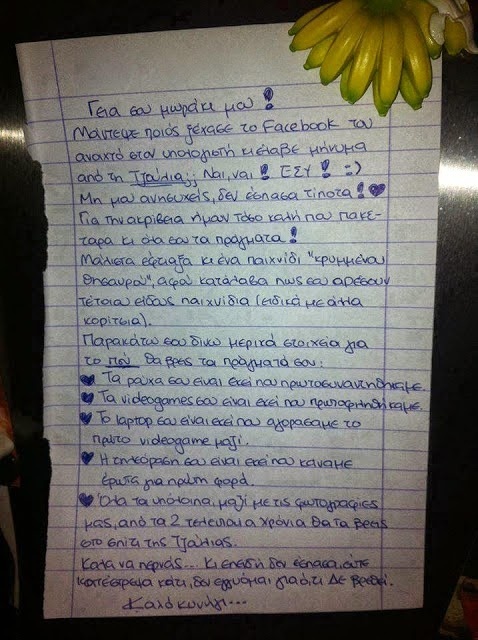 Γεια σου μωράκι μου!
Μάντεψε ποιός ξέχασε το Facebook του
ανοιχτό στον υπολογιστή κι έλαβε μήνυμα
από τη Τζούλια;; Ναι, ναι! ΕΣΥ! :-)
Μη μου ανησυχείς, δεν έσπασα τίποτα! ♥
Για την ακρίβεια ήμουν τόσο καλή που πακέ-
ταρα κι όλα σου τα πράγματα!
Μάλιστα έφτιαξα κι ένα παιχνίδι "κρυμμένου
θησαυρού", αφού κατάλαβα πως σου αρέσουν
τέτοιου είδους παιχνίδια (ειδικά με άλλα
κορίτσια).
Παρακάτω σου δίνω μερικά στοιχεία για
το πού θα βρεις τα πράγματά σου:
♥ Τα ρούχα σου είναι εκεί που πρωτοσυναντηθήκαμε.
♥ Τα videogames σου είναι εκεί που πρωτοφιληθήκαμε.
♥ Το laptop σου είναι εκεί που αγοράσαμε το
πρώτο videogame μαζί.
♥ Η τηλεόραση σου είναι εκεί που κάναμε
έρωτα για πρώτη φορά.
♥ Όλα τα υπόλοιπα, μαζί με τις φωτογραφίες
μας, από τα 2 τελευταία χρόνια θα τα βρεις
στο σπίτι της Τζούλιας.
Καλά να περνάς... Κι επειδή δεν έσπασα, ούτε
κατέστρεψα κάτι, δεν εγγυώμαι για ό,τι ΔΕ βρεθεί.
Καλό κυνήγι...